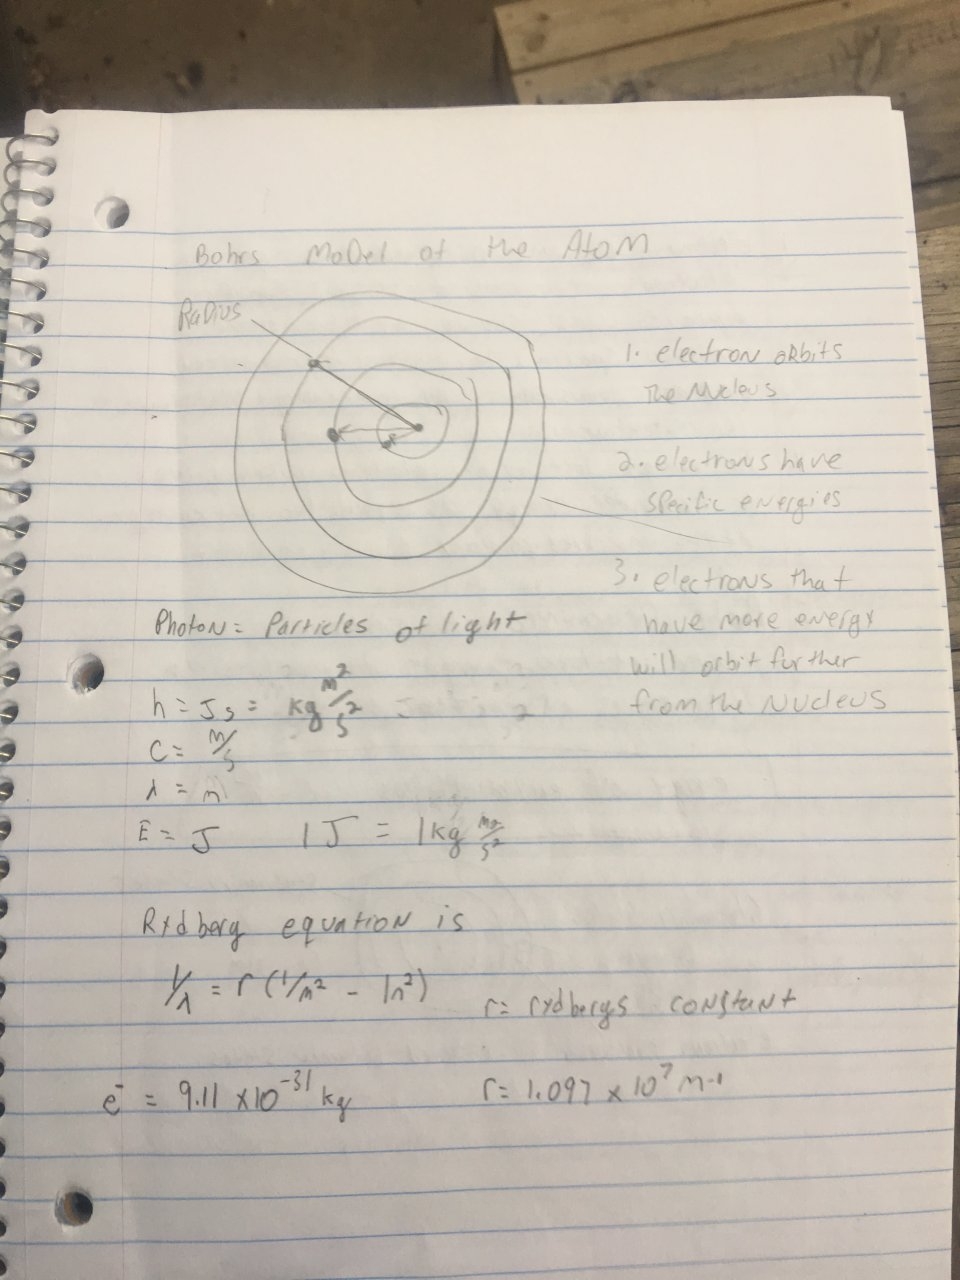 Bohrs Model of the Atom
Radius
1. electron orbits
The Nucleus
2. electrons have
specific energies
3. electrons that
have more energy
will orbit further
from the Nucleus
Photon = Particles of light
h = Js = kg m²/s²
C = m/s
λ = m
E = J 1J = 1kg m2/s²
Rydberg equation is
1/λ = r (1/m² - 1n²)
r = rydbergs constant
e⁻ = 9.11 x10⁻³¹ kg
r = 1.097 x 10⁷ m-1